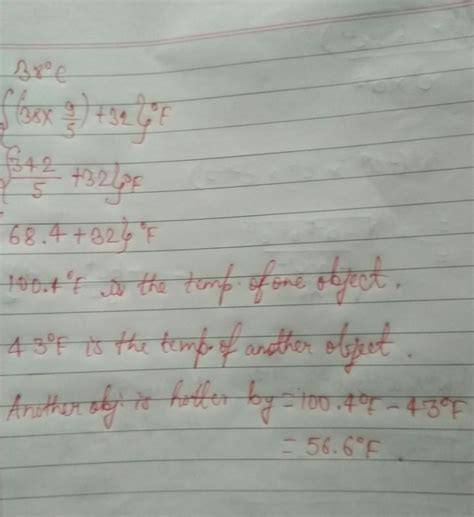 38°C
{(38 x 9/5) + 32}°F
{342/5 + 32}°F
68.4 + 32}°F
100.4°F is the temp. of one object.
43°F is the temp of another object.
Another obj is hotter by = 100.4°F - 43°F
= 56.6°F.